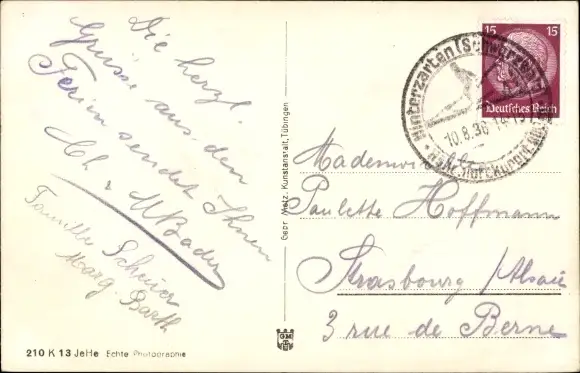 Die herzl.
Grüsse aus den
Ferien sendet Ihnen
Ch. u M Bader
Familie Scheuer
Marg. Barth
210 K 13 JeHe Echte Photographie
Gebr. Metz, Kunstanstalt, Tübingen
Hinterzarten (Schwarzwald)
10.8.36
Höhenluftkurort
15 15
Deutsches Reich
Mademoiselle
Paulette Hoffmann
Strasbourg /Alsace
3 rue de Berne